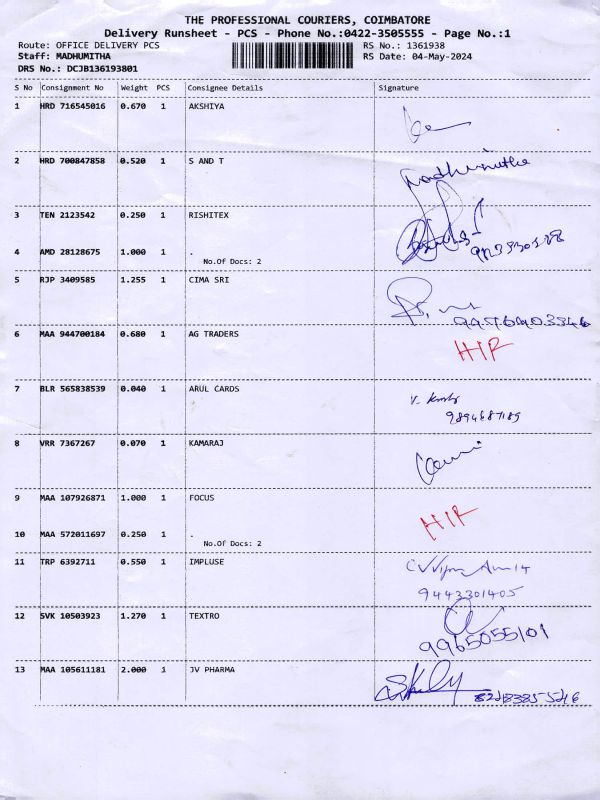 THE PROFESSIONAL COURIERS, COIMBATORE
Delivery Runsheet - PCS - Phone No.:0422-3505555 - Page No.:1
Route: OFFICE DELIVERY PCS RS No.: 1361938
Staff: MADHUMITHA RS Date: 04-May-2024
DRS No.: DCJB136193801
S No Consignment No Weight PCS Consignee Details Signature
1 HRD 716545016 0.670 1 AKSHIYA
2 HRD 700847858 0.520 1 S AND T
Madhumitha
3 TEN 2123542 0.250 1 RISHITEX
4 AMD 28128675 1.000 1 .
No.Of Docs: 2
5 RJP 3409585 1.255 1 CIMA SRI
6 MAA 944700184 0.680 1 AG TRADERS
HIR
7 BLR 565838539 0.040 1 ARUL CARDS
8 VRR 7367267 0.070 1 KAMARAJ
9 MAA 107926871 1.000 1 FOCUS
HIR
10 MAA 572011697 0.250 1 .
No.Of Docs: 2
11 TRP 6392711 0.550 1 IMPLUSE
9443301405
12 SVK 10503923 1.270 1 TEXTRO
9965055101
13 MAA 105611181 2.000 1 JV PHARMA